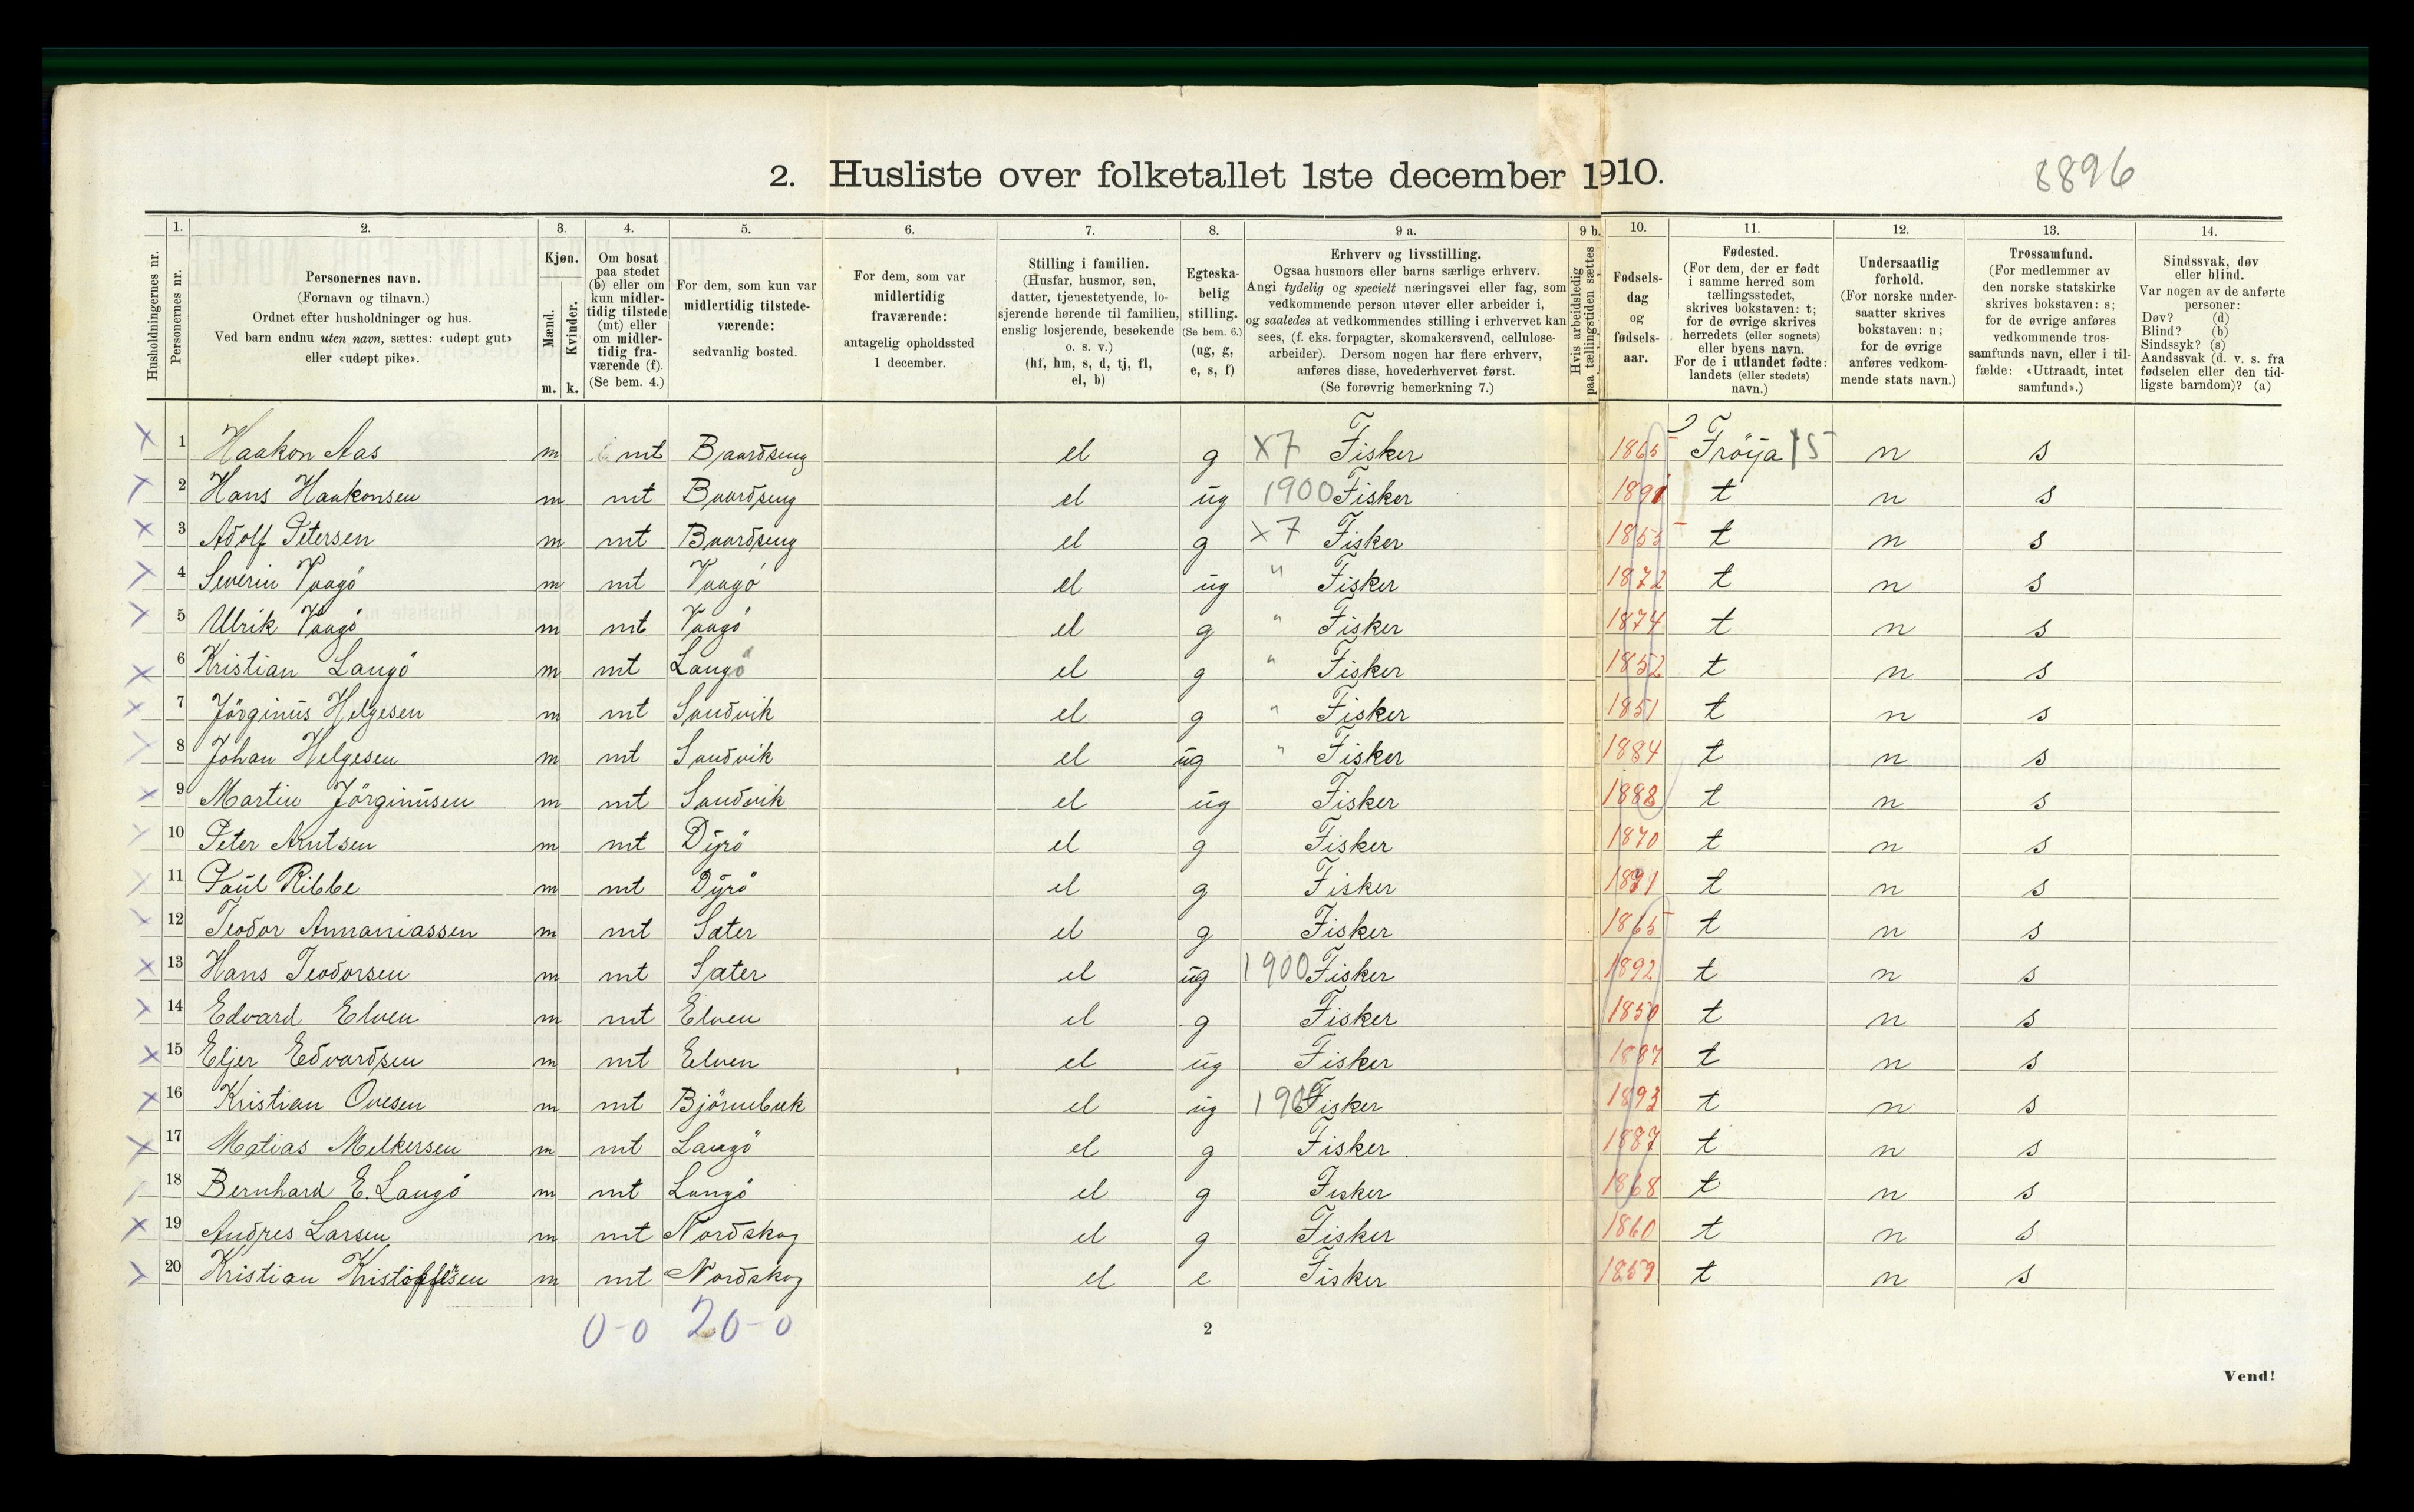 2. Husliste over folketallet 1ste december 1910.
8896
Husholdningernes nr.
1. Personernes nr.
2. Personernes navn. (Fornavn og tilnavn.) Ordnet efter husholdninger og hus. Ved barn endnu uten navn, sættes: «udøpt gut» eller «udøpt pike».
3. Kjøn. Mænd. m. Kvinder. k.
4. Om bosat paa stedet (b) eller om kun midlertidig tilstede (mt) eller om midlertidig fraværende (f). (Se bem. 4.)
5. For dem, som kun var midlertidig tilstedeværende: sedvanlig bosted.
6. For dem, som var midlertidig fraværende: antagelig opholdssted 1 december.
7. Stilling i familien. (Husfar, husmor, søn, datter, tjenestetyende, losjerende hørende til familien, enslig losjerende, besøkende o. s. v.) (hf, hm, s, d, tj, fl, el, b)
8. Egteskabelig stilling. (Se bem. 6.) (ug, g, e, s, f)
9 a. Erhverv og livsstilling. Ogsaa husmors eller barns særlige erhverv. Angi tydelig og specielt næringsvei eller fag, som vedkommende person utøver eller arbeider i, og saaledes at vedkommendes stilling i erhvervet kan sees, (f. eks. forpagter, skomakersvend, cellulosearbeider). Dersom nogen har flere erhverv, anføres disse, hovederhvervet først. (Se forøvrig bemerkning 7.)
9 b. Hvis arbeidsledig paa tællingstiden sættes
10. Fødselsdag og fødselsaar.
11. Fødested. (For dem, der er født i samme herred som tællingsstedet, skrives bokstaven: t; for de øvrige skrives herredets (eller sognets) eller byens navn. For de i utlandet fødte: landets (eller stedets) navn.)
12. Undersaatlig forhold. (For norske undersaatter skrives bokstaven: n; for de øvrige anføres vedkommende stats navn.)
13. Trossamfund. (For medlemmer av den norske statskirke skrives bokstaven: s; for de øvrige anføres vedkommende trossamfunds navn, eller i tilfælde: «Uttraadt, intet samfund».)
14. Sindssvak, døv eller blind. Var nogen av de anførte personer: Døv? (d) Blind? (b) Sindssyk? (s) Aandssvak (d. v. s. fra fødselen eller den tidligste barndom)? (a)
1 Haakon Aas m mt Baardseng el g X7 Fisker 1865 Fröya 15 n s
2 Hans Haakonsen m mt Baardseng el ug 1900 Fisker 1891 t n s
3 Adolf Petersen m mt Baardseng el g X7 Fisker 1855 t n s
4 Severin Vaagö m mt Vaagö el ug " Fisker 1872 t n s
5 Ulrik Vaagö m mt Vaagö el g " Fisker 1874 t n s
6 Kristian Langö m mt Langö el g " Fisker 1852 t n s
7 Jörginus Helgesen m mt Sandvik el g " Fisker 1851 t n s
8 Johan Helgesen m mt Sandvik el ug " Fisker 1884 t n s
9 Martin Jörginusen m mt Sandvik el ug Fisker 1888 t n s
10 Peter Arntsen m mt Dyrö el g Fisker 1870 t n s
11 Paul Ribbe m mt Dyrö el g Fisker 1871 t n s
12 Teodor Annaniassen m mt Sæter el g Fisker 1865 t n s
13 Hans Teodorsen m mt Sæter el ug 1900 Fisker 1892 t n s
14 Edvard Elven m mt Elven el g Fisker 1850 t n s
15 Eljer Edvardsen m mt Elven el ug Fisker 1887 t n s
16 Kristian Ovesen m mt Björnebek el ug 1900 Fisker 1893 t n s
17 Matias Melkersen m mt Langö el g Fisker 1887 t n s
18 Bernhard E. Langö m mt Langö el g Fisker 1868 t n s
19 Andres Larsen m mt Nordskog el g Fisker 1860 t n s
20 Kristian Kristoffesen m mt Nordskog el e Fisker 1859 t n s
0-0 20-0
2
Vend!